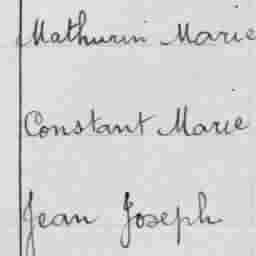 Mathurin Marie
Constant Marie
Jean Joseph